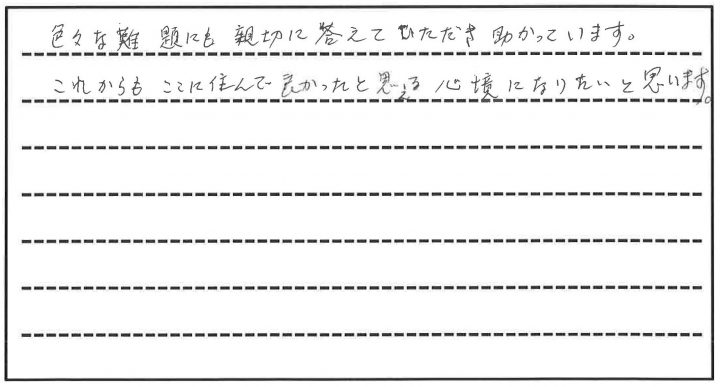 色々な難題にも親切に答えていただき助かっています。
これからもここに住んで良かったと思える心境になりたいと思います。